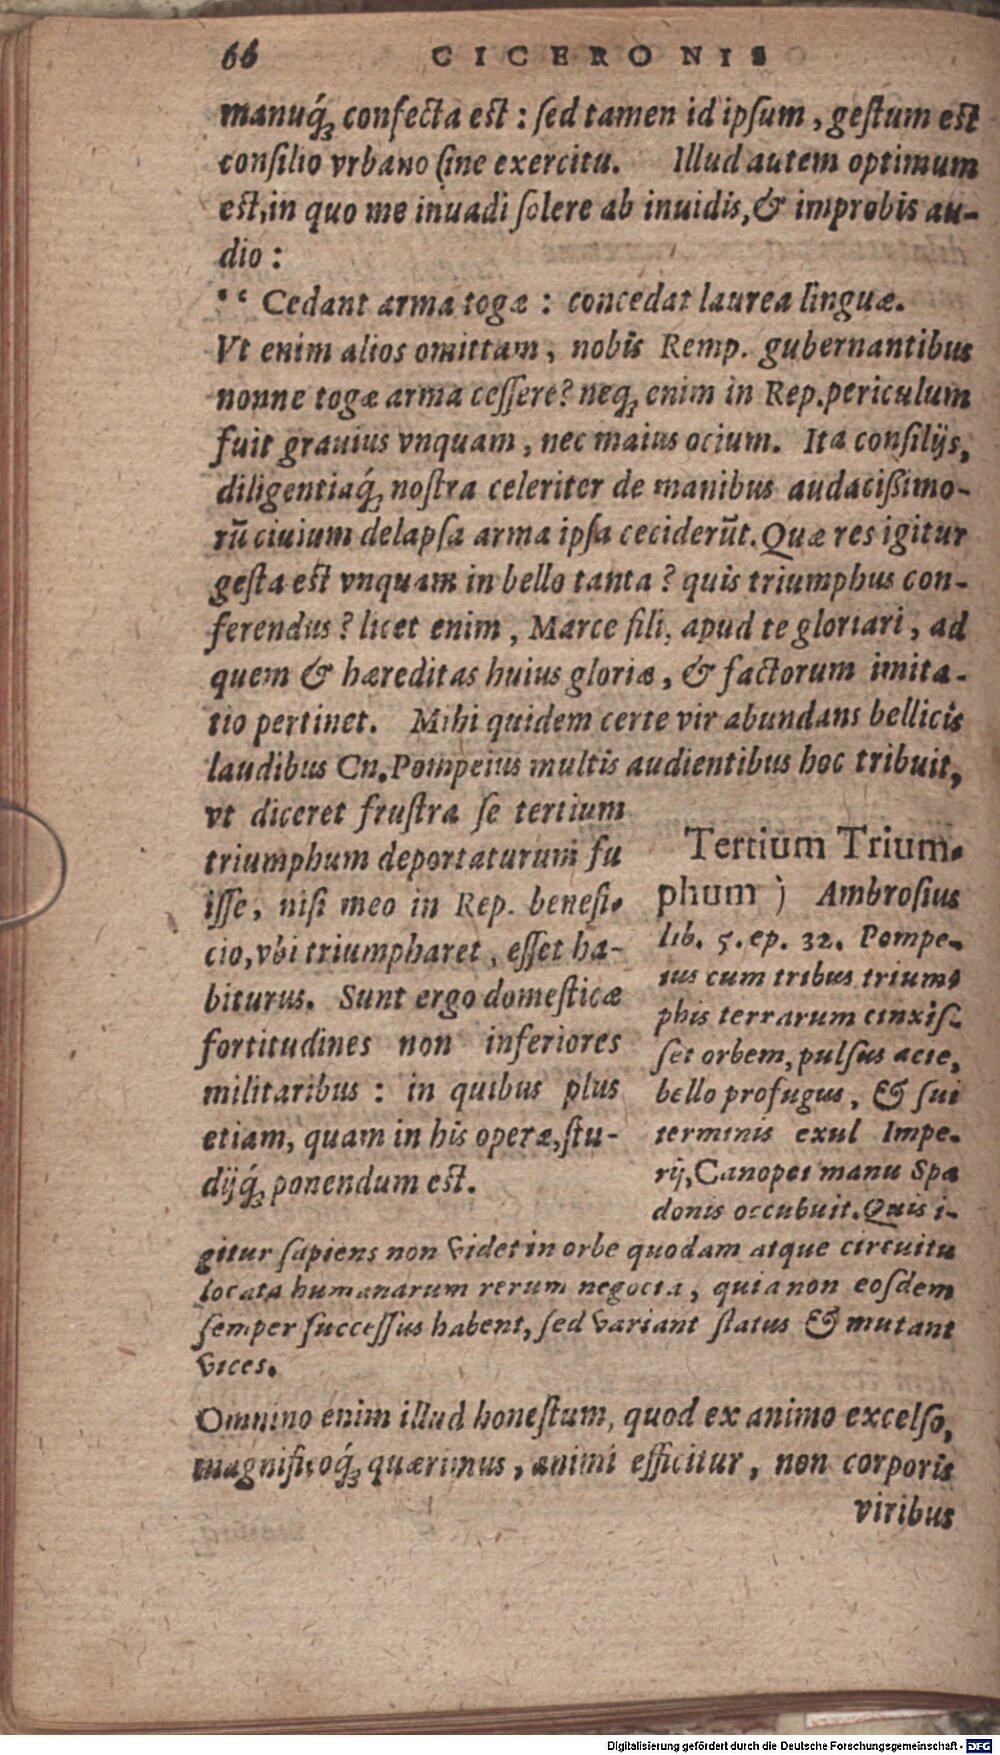 66 CICERONIS
manuq́; confecta est : ſed tamen id ipſum, geſtum est
conſilio vrbano ſine exercitu. Illud autem optimum
est, in quo me inuadi ſolere ab inuidis, & improbis au-
dio :
“ Cedant arma togæ : concedat laurea linguæ.
Vt enim alios omittam, nobis Remp. gubernantibus
nonne togæ arma ceſſere? neq; enim in Rep. periculum
fuit grauius vnquam, nec maius ocium. Ita conſilijs,
diligentiaq́; noſtra celeriter de manibus audacißimo-
rū ciuium delapſa arma ipſa ceciderūt. Quæ res igitur
geſta est vnquam in bello tanta ? quis triumphus con-
ferendus ? licet enim, Marce fili, apud te gloriari, ad
quem & hæreditas huius gloriæ, & factorum imita-
tio pertinet. Mihi quidem certe vir abundans bellicis
laudibus Cn. Pompeius multis audientibus hoc tribuit,
vt diceret fruſtra ſe tertium
triumphum deportaturum fu
iſſe, niſi meo in Rep. benefi-
cio, vbi triumpharet, eſſet ha-
biturus. Sunt ergo domeſticæ
fortitudines non inferiores
militaribus : in quibus plus
etiam, quam in his operæ, ſtu-
dijq́; ponendum est.
Tertium Trium-
phum ) Ambroſius
lib. 5. ep. 32. Pompe-
ius cum tribus trium-
phis terrarum cinxiſ-
ſet orbem, pulſus acie,
bello profugus, & ſui
terminis exul Impe-
rij, Canopei manu Spa
donis occubuit. Quis i-
gitur ſapiens non videt in orbe quodam atque circuitu
locata humanarum rerum negocia, quia non eoſdem
ſemper ſucceſſus habent, ſed variant ſtatus & mutant
vices.
Omnino enim illud honeſtum, quod ex animo excelſo,
magnificoq́; quærimus, animi efficitur, non corporis
viribus
Digitalisierung gefördert durch die Deutsche Forschungsgemeinschaft - DFG